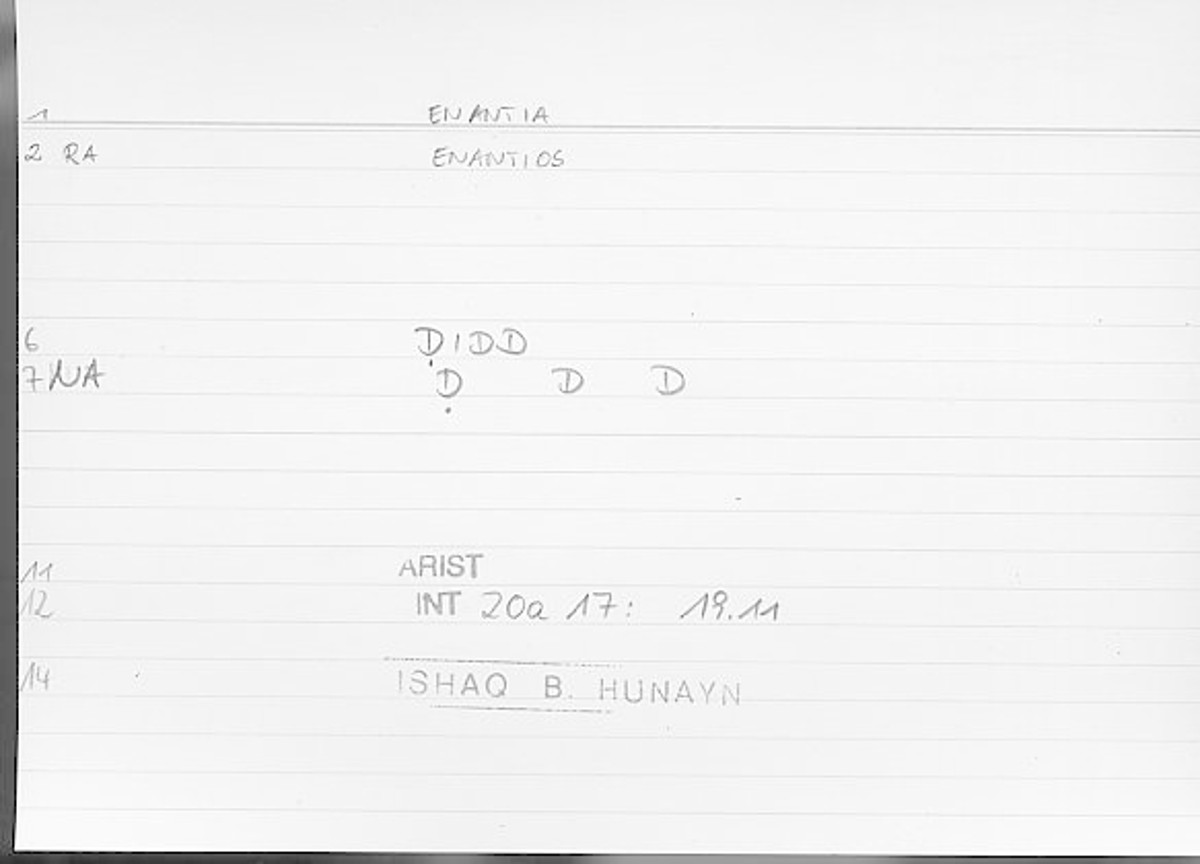 1 ENANTIA
2 RA ENANTIOS
6 ḌIDD
7 NA Ḍ D D
11 ARIST
12 INT 20a 17: 19.11
14 ISHAQ B. HUNAYN